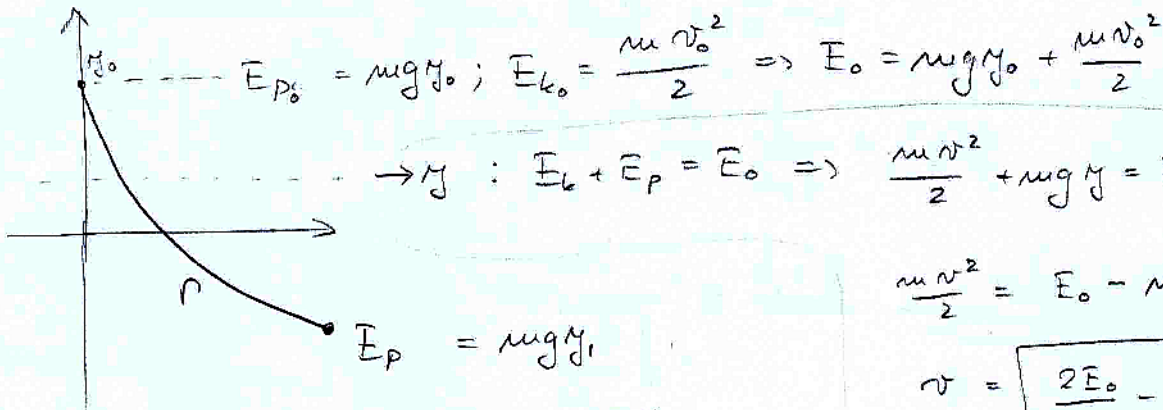 y₀ ---- E_{p₀} = mgy₀ ; E_{k₀} = \frac{mv₀²}{2} => E₀ = mgy₀ + \frac{mv₀²}{2}
→ y : E_k + E_p = E₀ => \frac{mv²}{2} + mgy =
\frac{mv²}{2} = E₀ -
Γ
E_p = mgy₁
v = \sqrt{\frac{2E₀}{} -